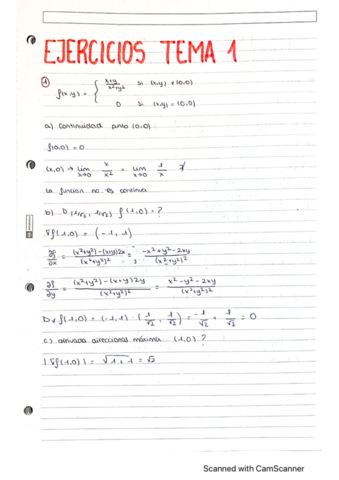 EJERCICIOS TEMA 1
① f(x,y) = { x+y / x²+y² si (x,y) ≠ (0,0)
0 si (x,y) = (0,0)
a) Continuidad punto (0,0)
f(0,0) = 0
(x,0) → lim x→0 x/x² = lim x→0 1/x ∄
La función no es continua
b) D (1/√2, 1/√2) f(1,0) = ?
∇f(1,0) = (-1, 1)
∂f/∂x = (x²+y²)-(x+y)2x / (x²+y²)² = ; -x²+y²-2xy / (x²+y²)²
∂f/∂y = (x²+y²)-(x+y)2y / (x²+y²)² = x²-y²-2xy / (x²+y²)²
Dv f(1,0) = (-1,1) · (1/√2, 1/√2) = -1/√2 + 1/√2 = 0
c) derivada direccional máxima (1,0)?
|∇f(1,0)| = √1+1 = √2
Scanned with CamScanner